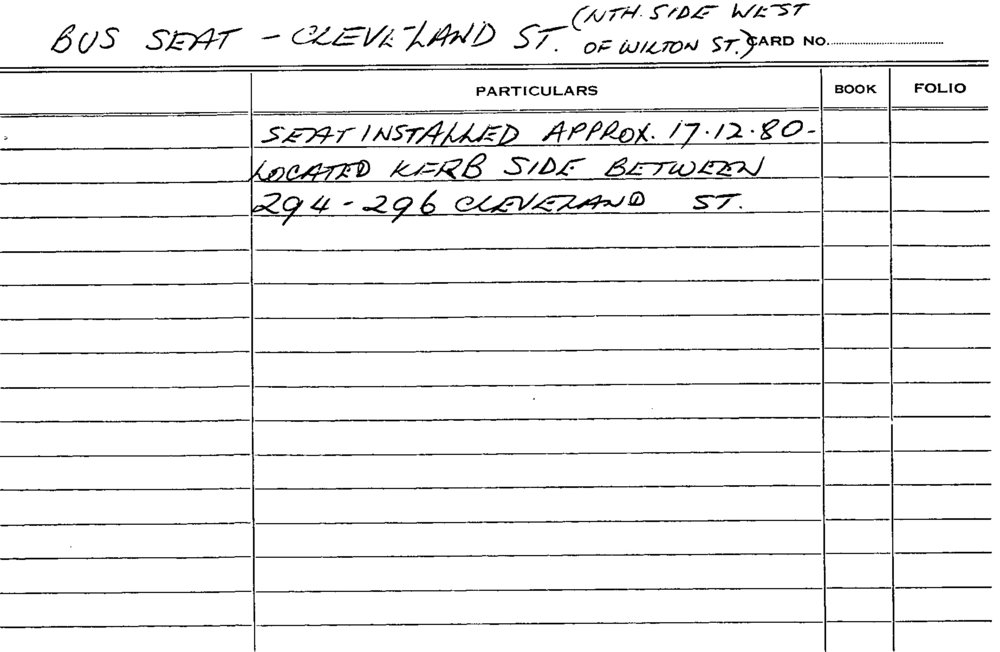 BUS SEAT - CLEVELAND ST. (NTH. SIDE WEST
OF WILTON ST.) CARD NO.
PARTICULARS BOOK FOLIO
SEAT INSTALLED APPROX. 17.12.80-
LOCATED KERB SIDE BETWEEN
294-296 CLEVELAND ST.